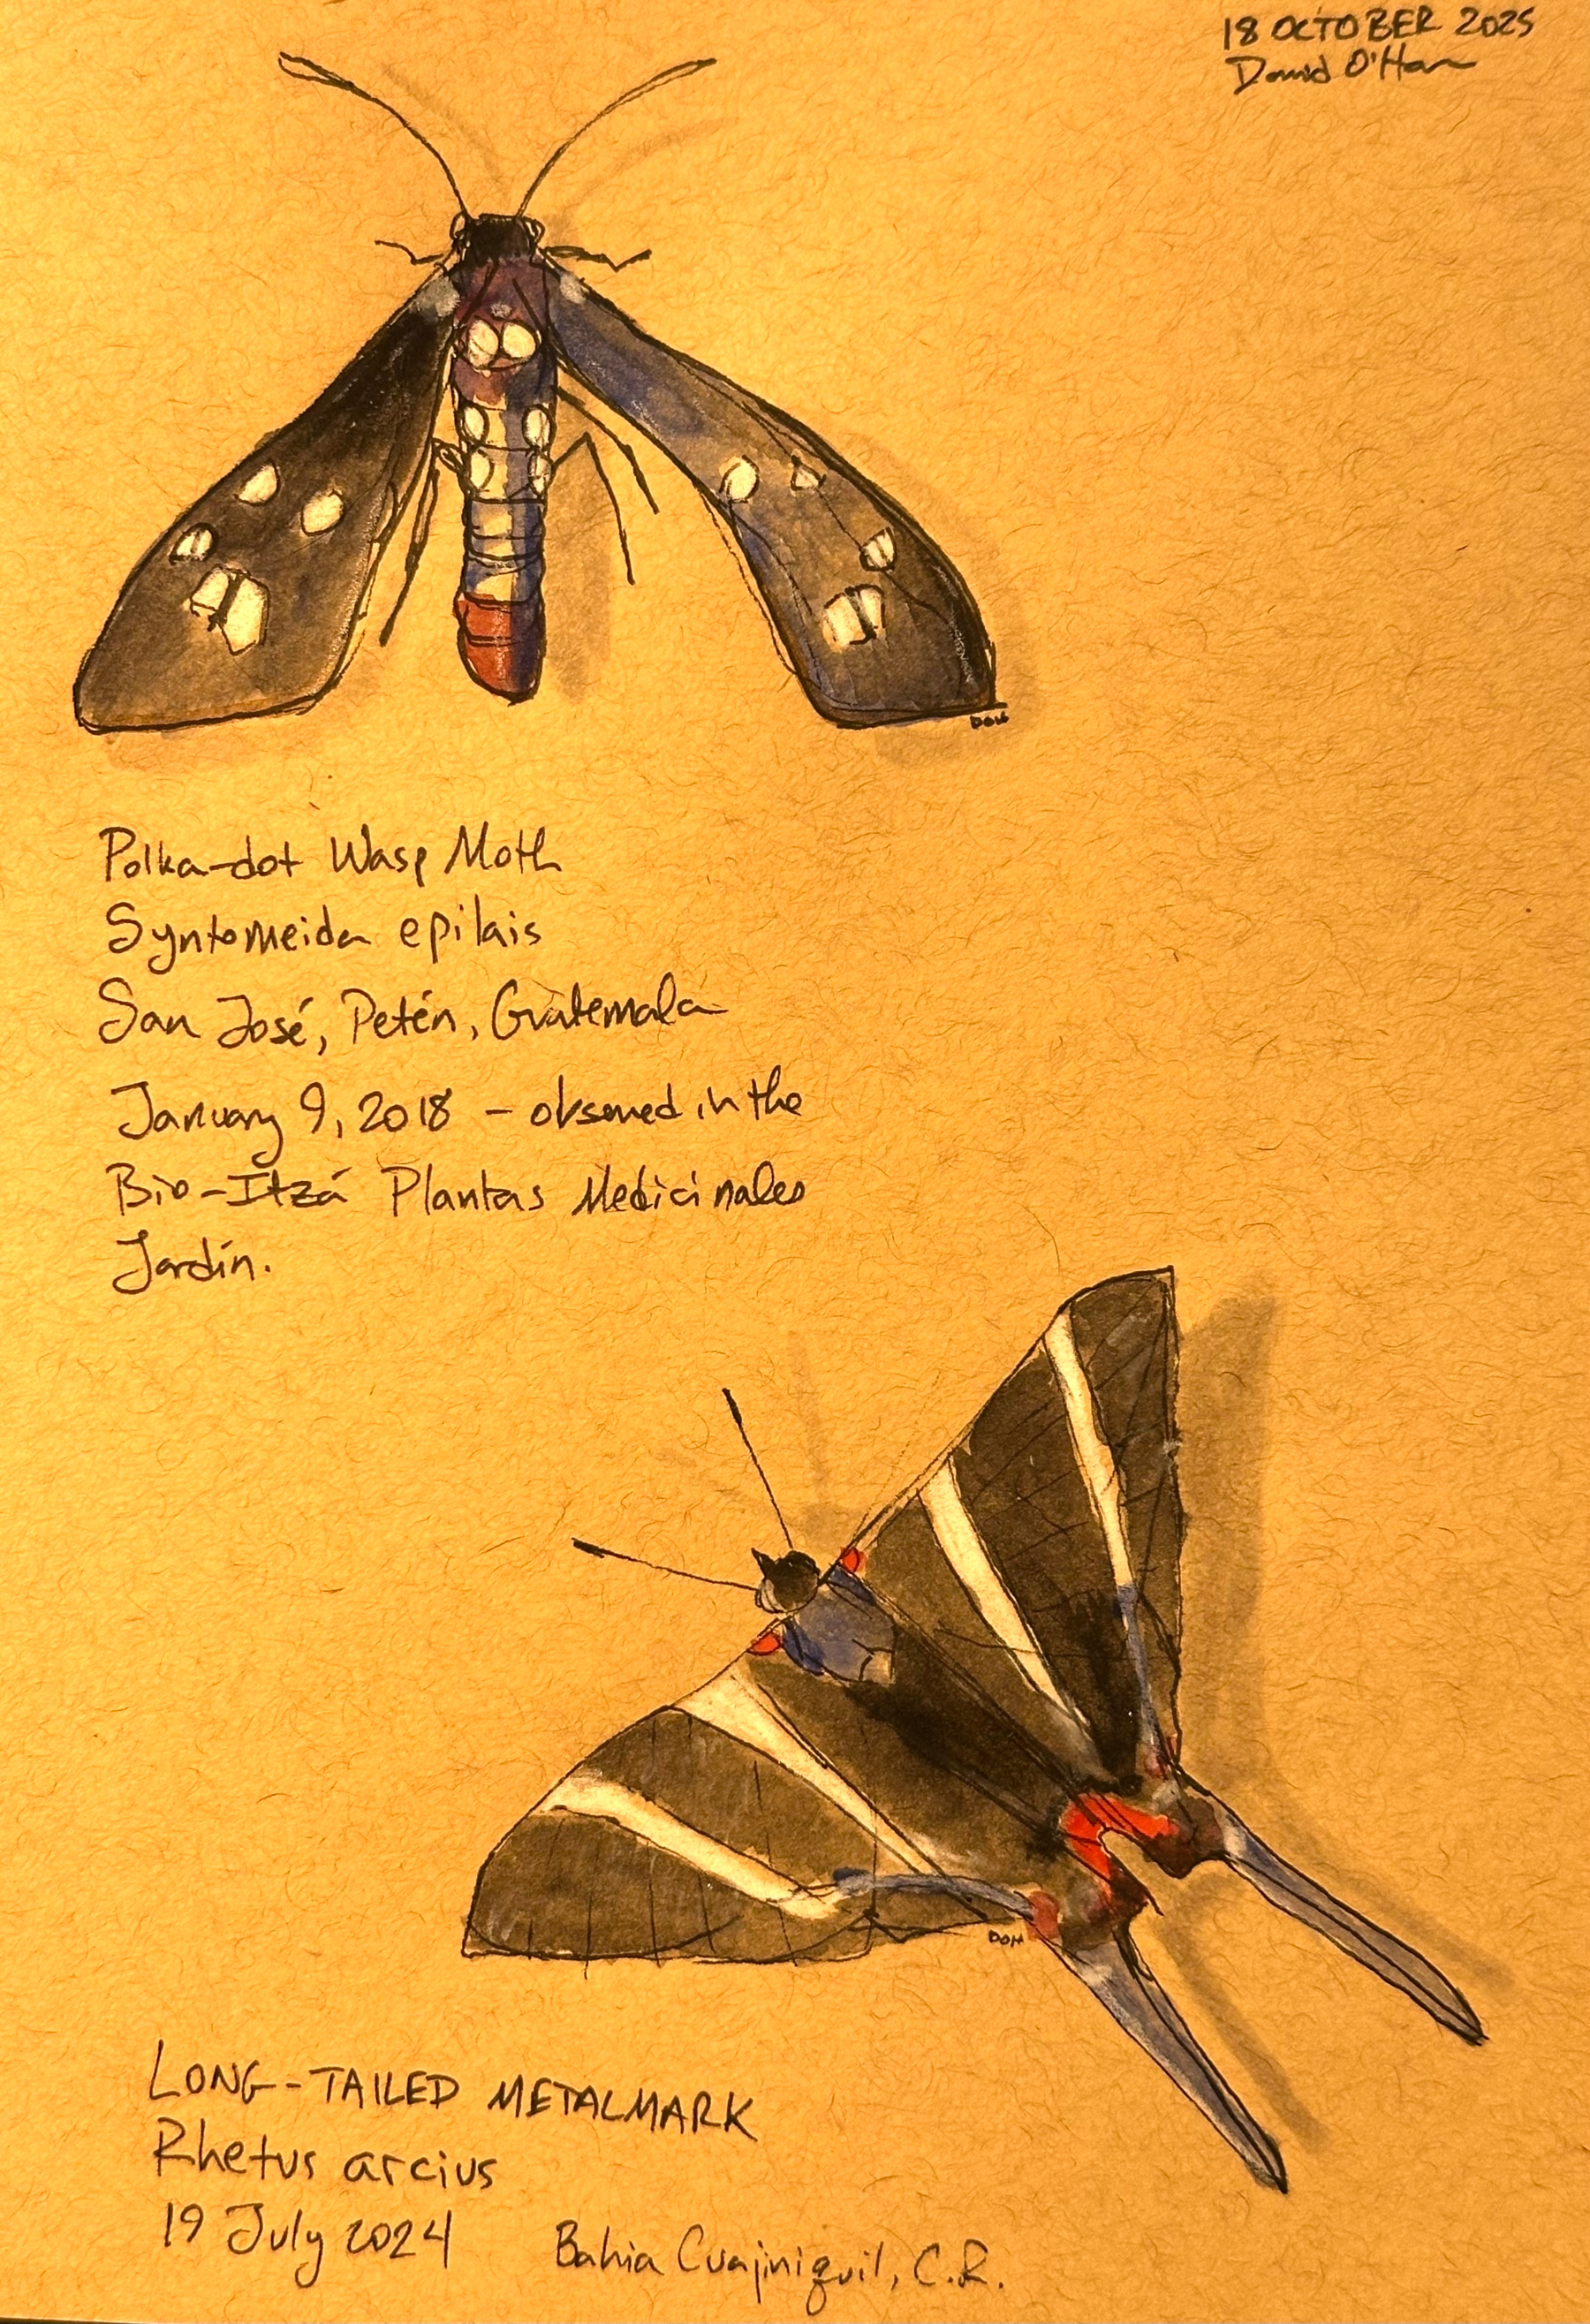 18 OCTOBER 2025
David O'Hara
DOH
Polka-dot Wasp Moth
Syntomeida epilais
San José, Petén, Guatemala
January 9, 2018 – observed in the
Bio-Itzá Plantas Medicinales
Jardín.
DOH
LONG-TAILED METALMARK
Rhetus arcius
19 July 2024 Bahia Cuajiniquil, C.R.